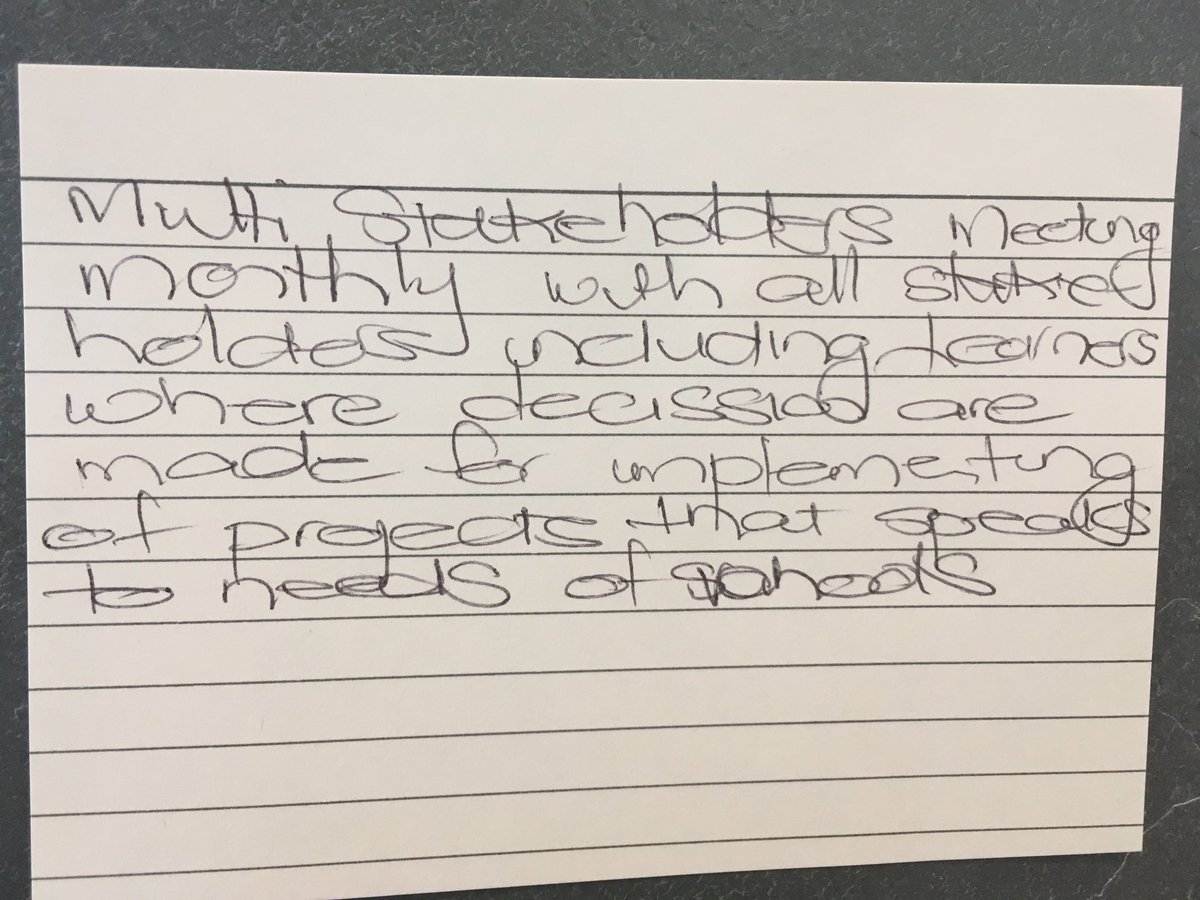 Multi Stakeholders Meeting
Monthly with all stake
holders including learners
where decission are
made for implementing
of projects that speaks
to needs of schools